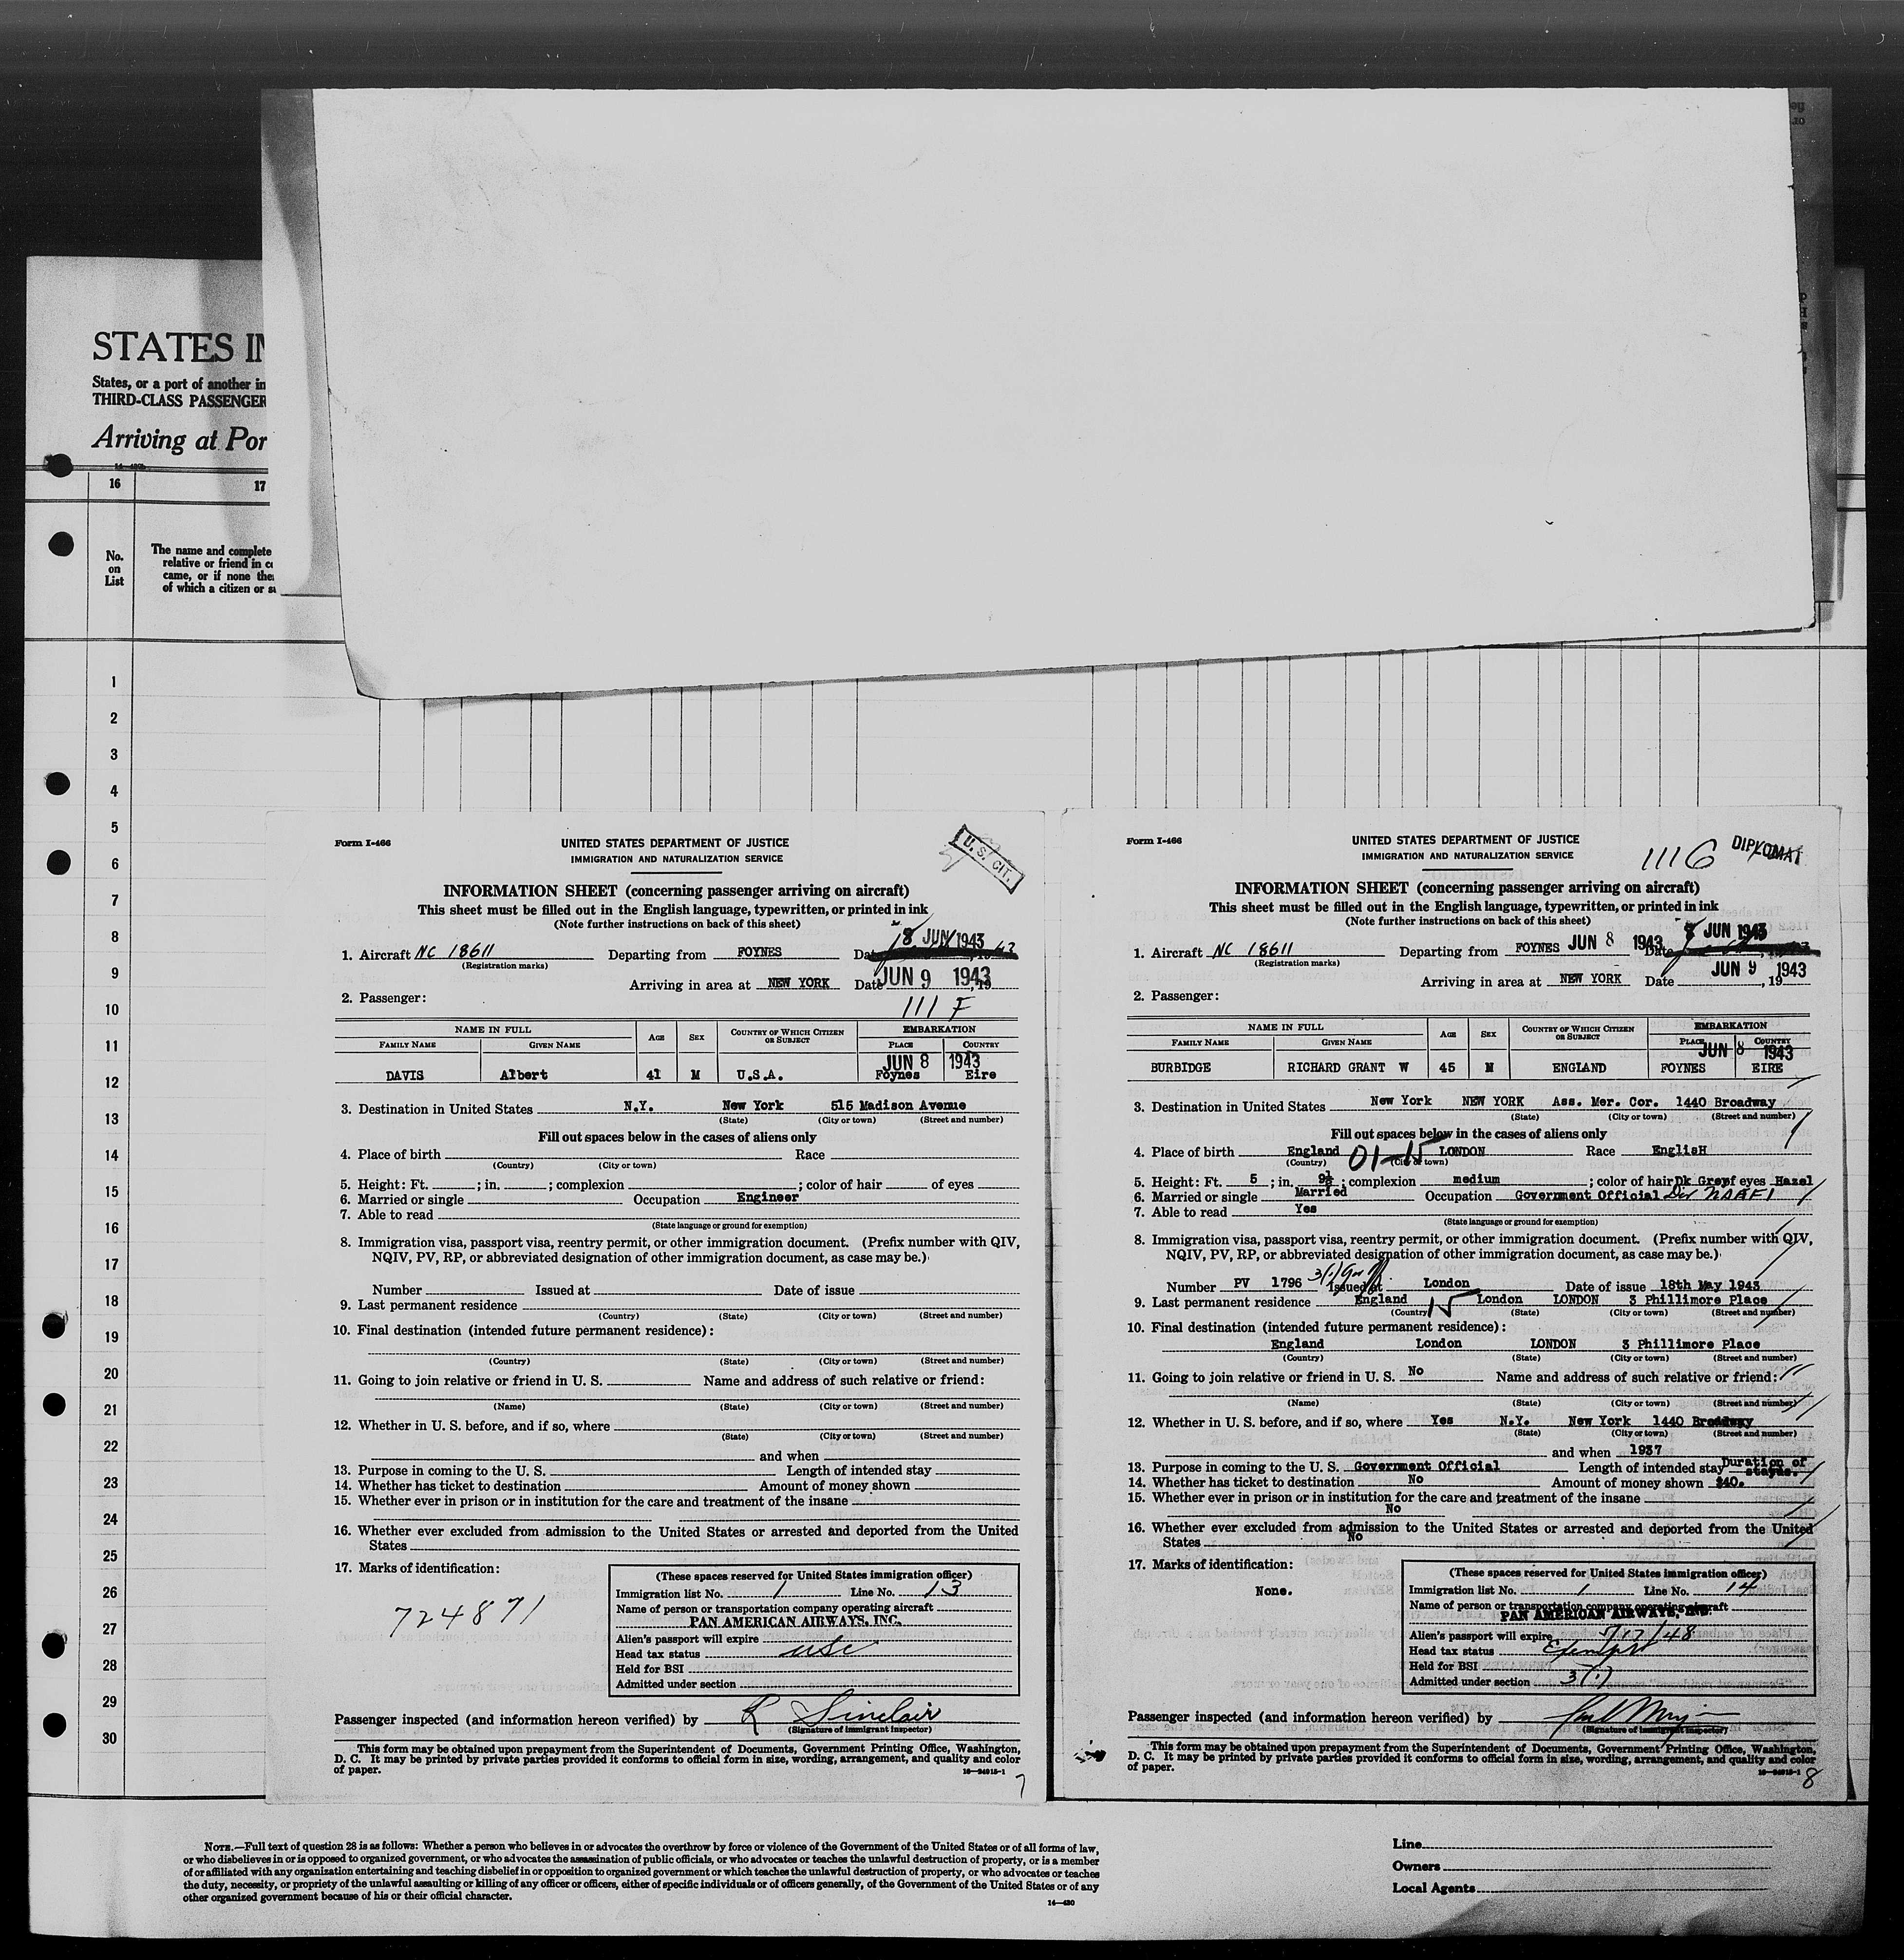 STATES IN
States, or a port of another in
THIRD-CLASS PASSENGER
Arriving at Por
16 17
No. on List
The name and complete
relative or friend in co
came, or if none the
of which a citizen or su
1
2
3
4
5
6
7
8
9
10
11
12
13
14
15
16
17
18
19
20
21
22
23
24
25
26
27
28
29
30
Form I-466
UNITED STATES DEPARTMENT OF JUSTICE
IMMIGRATION AND NATURALIZATION SERVICE
U. S. CIT.
INFORMATION SHEET (concerning passenger arriving on aircraft)
This sheet must be filled out in the English language, typewritten, or printed in ink
(Note further instructions on back of this sheet)
8 JUN 1943
1. Aircraft NC 18611 Departing from FOYNES Date
(Registration marks)
Arriving in area at NEW YORK Date JUN 9 1943, 19
2. Passenger: 111 F
NAME IN FULL AGE SEX COUNTRY OF WHICH CITIZEN OR SUBJECT EMBARKATION
FAMILY NAME GIVEN NAME PLACE COUNTRY
JUN 8 1943
DAVIS Albert 41 M U.S.A. Foynes Eire
3. Destination in United States N.Y. New York 515 Madison Avenue
(State) (City or town) (Street and number)
Fill out spaces below in the cases of aliens only
4. Place of birth Race
(Country) (City or town)
5. Height: Ft. ; in. ; complexion ; color of hair of eyes
6. Married or single Occupation Engineer
7. Able to read
(State language or ground for exemption)
8. Immigration visa, passport visa, reentry permit, or other immigration document. (Prefix number with QIV,
NQIV, PV, RP, or abbreviated designation of other immigration document, as case may be.)
Number Issued at Date of issue
9. Last permanent residence
(Country) (State) (City or town) (Street and number)
10. Final destination (intended future permanent residence):
(Country) (State) (City or town) (Street and number)
11. Going to join relative or friend in U. S. Name and address of such relative or friend:
(Name) (State) (City or town) (Street and number)
12. Whether in U. S. before, and if so, where
(State) (City or town) (Street and number)
and when
13. Purpose in coming to the U. S. Length of intended stay
14. Whether has ticket to destination Amount of money shown
15. Whether ever in prison or in institution for the care and treatment of the insane
16. Whether ever excluded from admission to the United States or arrested and deported from the United
States
17. Marks of identification:
724871
(These spaces reserved for United States immigration officer)
Immigration list No. 1 Line No. 13
Name of person or transportation company operating aircraft
PAN AMERICAN AIRWAYS, INC.
Alien's passport will expire
Head tax status USC
Held for BSI
Admitted under section
Passenger inspected (and information hereon verified) by R Sinclair
(Signature of immigrant inspector)
This form may be obtained upon prepayment from the Superintendent of Documents, Government Printing Office, Washington,
D. C. It may be printed by private parties provided it conforms to official form in size, wording, arrangement, and quality and color
of paper. 16—24015-1
7
Form I-466
UNITED STATES DEPARTMENT OF JUSTICE
IMMIGRATION AND NATURALIZATION SERVICE
1116 DIPLOMAT
INFORMATION SHEET (concerning passenger arriving on aircraft)
This sheet must be filled out in the English language, typewritten, or printed in ink
(Note further instructions on back of this sheet)
8 JUN 1943
1. Aircraft NC 18611 Departing from FOYNES JUN 8 1943 Date
(Registration marks)
Arriving in area at NEW YORK Date JUN 9 1943, 19
2. Passenger:
NAME IN FULL AGE SEX COUNTRY OF WHICH CITIZEN OR SUBJECT EMBARKATION
FAMILY NAME GIVEN NAME PLACE COUNTRY
JUN 8 1943
BURBIDGE RICHARD GRANT W 45 M ENGLAND FOYNES EIRE
3. Destination in United States New York NEW YORK Ass. Mer. Cor. 1440 Broadway
(State) (City or town) (Street and number)
Fill out spaces below in the cases of aliens only
4. Place of birth England 01-15 LONDON Race EnglisH
(Country) (City or town)
5. Height: Ft. 5 ; in. 9½ ; complexion medium ; color of hair Dk Grey of eyes Hazel
6. Married or single Married Occupation Government Official Dir NAAFI
7. Able to read Yes
(State language or ground for exemption)
8. Immigration visa, passport visa, reentry permit, or other immigration document. (Prefix number with QIV,
NQIV, PV, RP, or abbreviated designation of other immigration document, as case may be.)
Number PV 1796 3(1) Issued at London Date of issue 18th May 1943
9. Last permanent residence England 15 London LONDON 3 Phillimore Place
(Country) (State) (City or town) (Street and number)
10. Final destination (intended future permanent residence):
England London LONDON 3 Phillimore Place
(Country) (State) (City or town) (Street and number)
11. Going to join relative or friend in U. S. No Name and address of such relative or friend:
(Name) (State) (City or town) (Street and number)
12. Whether in U. S. before, and if so, where Yes N.Y. New York 1440 Broadway
(State) (City or town) (Street and number)
and when 1937
13. Purpose in coming to the U. S. Government Official Length of intended stay Duration of
14. Whether has ticket to destination No Amount of money shown $40.
15. Whether ever in prison or in institution for the care and treatment of the insane
No
16. Whether ever excluded from admission to the United States or arrested and deported from the United
States No
17. Marks of identification:
None.
(These spaces reserved for United States immigration officer)
Immigration list No. 1 Line No. 14
Name of person or transportation company operating aircraft
PAN AMERICAN AIRWAYS, INC.
Alien's passport will expire 5/17/48
Head tax status Exempt
Held for BSI
Admitted under section 3(1)
Passenger inspected (and information hereon verified) by
(Signature of immigrant inspector)
This form may be obtained upon prepayment from the Superintendent of Documents, Government Printing Office, Washington,
D. C. It may be printed by private parties provided it conforms to official form in size, wording, arrangement, and quality and color
of paper. 16—24015-1
8
NOTE.—Full text of question 28 is as follows: Whether a person who believes in or advocates the overthrow by force or violence of the Government of the United States or of all forms of law,
or who disbelieves in or is opposed to organized government, or who advocates the assassination of public officials, or who advocates or teaches the unlawful destruction of property, or is a member
of or affiliated with any organization entertaining and teaching disbelief in or opposition to organized government or which teaches the unlawful destruction of property, or who advocates or teaches
the duty, necessity, or propriety of the unlawful assaulting or killing of any officer or officers, either of specific individuals or of officers generally, of the Government of the United States or of any
other organized government because of his or their official character.
14—430
Line
Owners
Local Agents